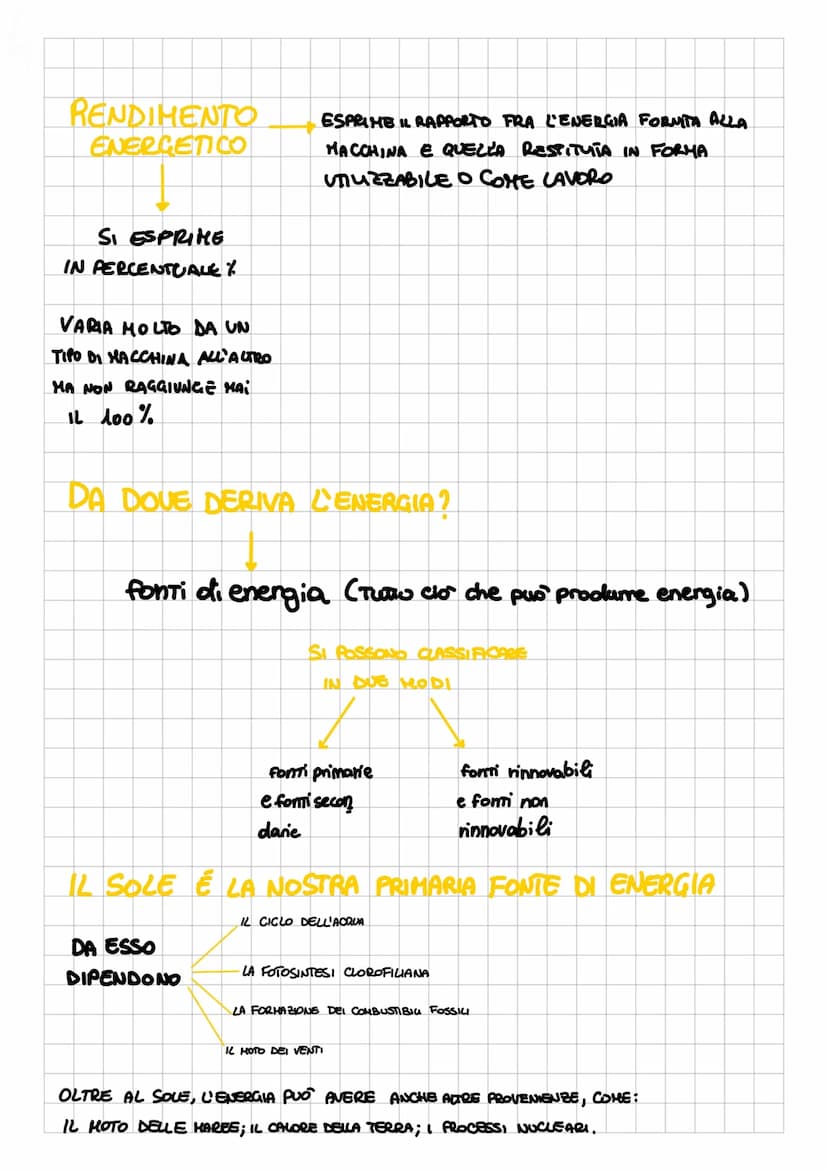 RENDIMENTO
ENERGETICO
ESPRIME IL RAPPORTO FRA L'ENERGIA FORNITA ALLA
MACCHINA E QUELLA RESTITUITA IN FORMA
UTILIZZABILE O COME LAVORO
SI ESPRIME
IN PERCENTUALE %
VARIA MOLTO DA UN
TIPO DI MACCHINA ALL'ALTRO
MA NON RAGGIUNGE MAI
IL 100%
DA DOVE DERIVA L'ENERGIA?
fonti di energia (TUTTO ciò che può produrre energia)
SI POSSONO CLASSIFICARE
IN DUE MODI
fonti primarie
e fonti secon
darie
fonti rinnovabili
e fonti non
rinnovabili
IL SOLE É LA NOSTRA PRIMARIA FONTE DI ENERGIA
DA ESSO
DIPENDONO
IL CICLO DELL'ACQUA
LA FOTOSINTESI CLOROFILIANA
LA FORMAZIONE DEI COMBUSTIBILI FOSSILI
IL MOTO DEI VENTI
OLTRE AL SOLE, L'ENERGIA PUÒ AVERE ANCHE ALTRE PROVENIENZE, COME:
IL MOTO DELLE MAREE; IL CALORE DELLA TERRA; I PROCESSI NUCLEARI.